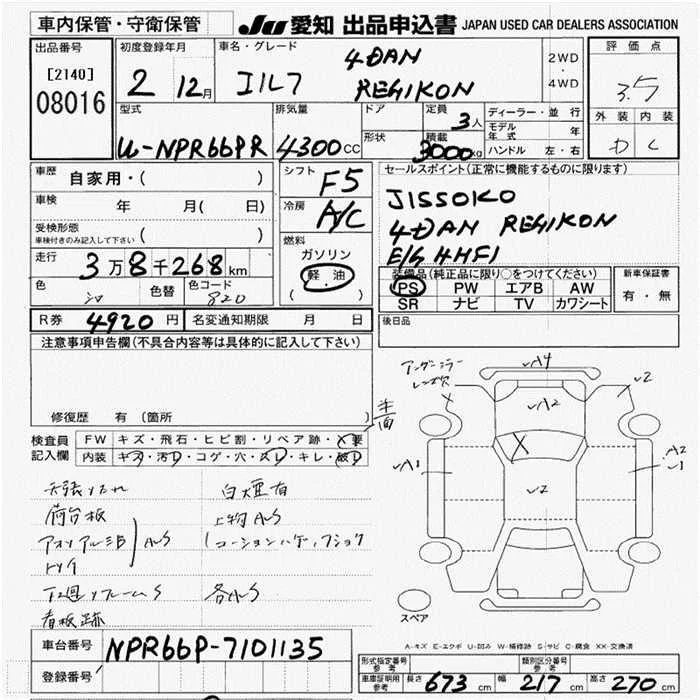 車内保管・守衛保管
JU 愛知 出品申込書 JAPAN USED CAR DEALERS ASSOCIATION
出品番号
[2140]
08016
初度登録年月
2 12月
車名・グレード
エルフ
4DAN
REGIKON
2WD
・
4WD
評価点
3.5
外装 内装
D C
型式
U-NPR66PR
排気量
4300cc
ドア
形状
定員
3人
積載
3000kg
ディーラー・並行
モデル年式 年
ハンドル 左・右
車歴 自家用・( )
車検 年 月( 日)
受検形態
車検付きのみ記入して下さい ( )
走行 3万8千268km
色 シロ 色替 色コード 820
シフト F5
冷房 A/C
燃料
ガソリン
軽油
( )
セールスポイント(正常に機能するものに限ります)
JISSOKO
4DAN REGIKON
E/G 4HF1
装備品(純正品に限り○をつけてください)
PS PW エアB AW
SR ナビ TV カワシート
新車保証書
有・無
R券 4920円 名変通知期限 月 日
後日品
注意事項申告欄(不具合内容等は具体的に記入して下さい)
修復歴 有(箇所 )
検査員
記入欄
FW キズ・飛石・ヒビ割・リペア跡・X要
内装 キズ・汚レ・コゲ・穴・スレ・キレ・破レ
荷台板
アオリ
AS
下廻りフレームS
看板跡
白煙有
上物AS
各AS
アンダーミラー
レンズ欠
A4
A2
A1
2
2
A2
1
スペア
A-キズ E-エクボ U-凹み W-補修跡 S-サビ C-腐食 XX-交換済
車台番号 NPR66P-7101135
登録番号
型式指定番号
参考
類別区分番号
参考
車庫証明用
参考
長さ 673cm 幅 217cm 高さ 270cm